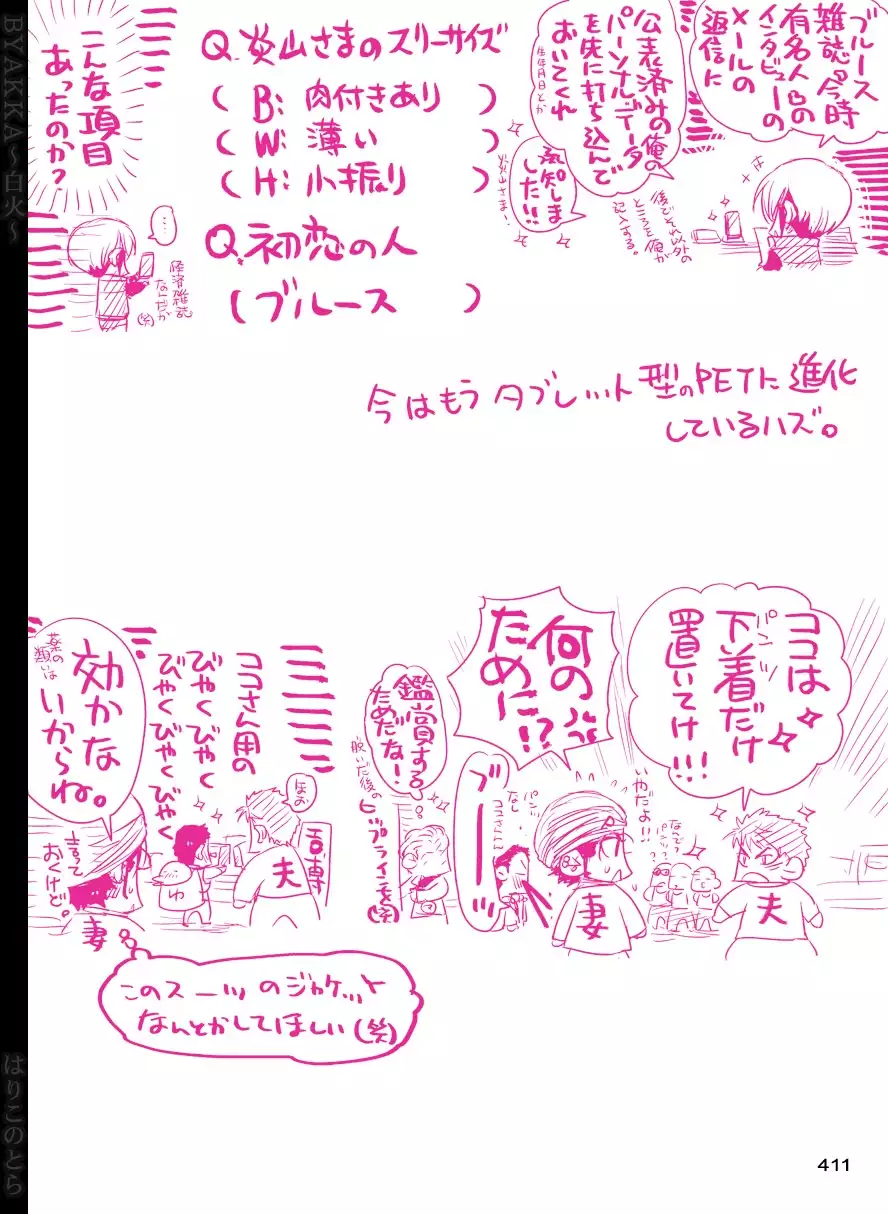 ブルース
雑誌の今時
有名人Bの
インタビューの
メールの
返信に
公表済みの俺の
パーソナルデータ
を先に打ち込んで
おいてくれ
生年月日とか
承知しま
した!!
炎山さま、
後でそれ以外の
ところを俺が
記入する。
Q.炎山さまのスリーサイズ
(B:肉付きあり)
(W:薄い)
(H:小振り)
Q.初恋の人
(ブルース)
こんな項目
あったのか?
…
経済雑誌
なんだが
(笑)
今はもうタブレット型のPETに進化
しているハズ。
ココは
下着だけ
パンツ
置いてけ!!!
なんで?
パンツ?
いやだよ!!
何の
ために!?
パンツ
なし
ココさんん
ブーッ
鑑賞する
ためだな!
脱いだ後の
ヒップラインを(笑)
夫
妻
ココさん用の
びやくびやく
びやくびやくびやく
ほお
夫
ゆ
効かな
いからね。
薬の
類いは
言って
おくけど。
妻
このスーツのジャケット
なんとかしてほしい(笑)
411
BYAKKA~白火~
はりこのとら